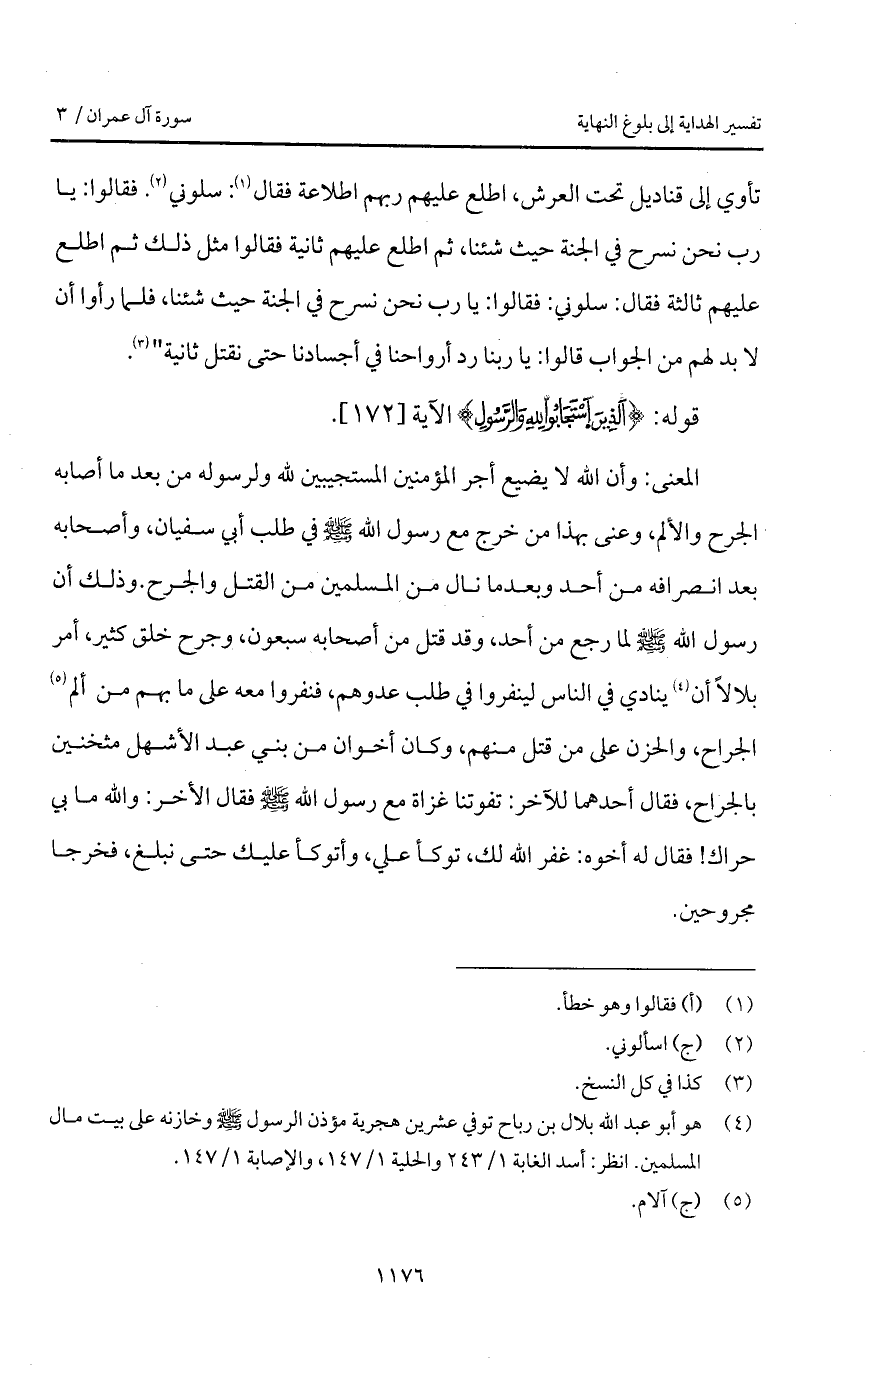 تفسير الهداية إلى بلوغ النهاية
سورة آل عمران / ٣
تأوي إلى قناديل تحت العرش، اطلع عليهم ربهم اطلاعة فقال(١): سلوني(٢). فقالوا: يا
رب نحن نسرح في الجنة حيث شئنا، ثم اطلع عليهم ثانية فقالوا مثل ذلك ثم اطلع
عليهم ثالثة فقال: سلوني: فقالوا: يا رب نحن نسرح في الجنة حيث شئنا، فلما رأوا أن
لا بد لهم من الجواب قالوا: يا ربنا رد أرواحنا في أجسادنا حتى نقتل ثانية"(٣).
قوله: ﴿الَّذِينَ اَسْتَجَابُواْ لِلهِ وَالرَّسُولِ﴾ الآية [١٧٢].
المعنى: وأن الله لا يضيع أجر المؤمنين المستجيبين لله ولرسوله من بعد ما أصابه
الجرح والألم، وعنى بهذا من خرج مع رسول الله ﷺ في طلب أبي سفيان، وأصحابه
بعد انصرافه من أحد وبعدما نال من المسلمين من القتل والجرح.وذلك أن
رسول الله ﷺ لما رجع من أحد، وقد قتل من أصحابه سبعون، وجرح خلق كثير، أمر
بلالاً أن(٤) ينادي في الناس لينفروا في طلب عدوهم، فنفروا معه على ما بهم من ألم(٥)
الجراح، والحزن على من قتل منهم، وكان أخوان من بني عبد الأشهل مثخنين
بالجراح، فقال أحدهما للآخر: تفوتنا غزاة مع رسول الله ﷺ فقال الأخر: والله ما بي
حراك! فقال له أخوه: غفر الله لك، توكأ علي، وأتوكأ عليك حتى نبلغ، فخرجا
مجروحين.
(١) (أ) فقالوا وهو خطأ.
(٢) (ج) اسألوني.
(٣) كذا في كل النسخ.
(٤) هو أبو عبد الله بلال بن رباح توفي عشرين هجرية مؤذن الرسول ﷺ وخازنه على بيت مال
المسلمين. انظر: أسد الغابة ١/ ٢٤٣ والحلية ١/ ١٤٧، والإصابة ١/ ١٤٧.
(٥) (ج) آلام.
١١٧٦